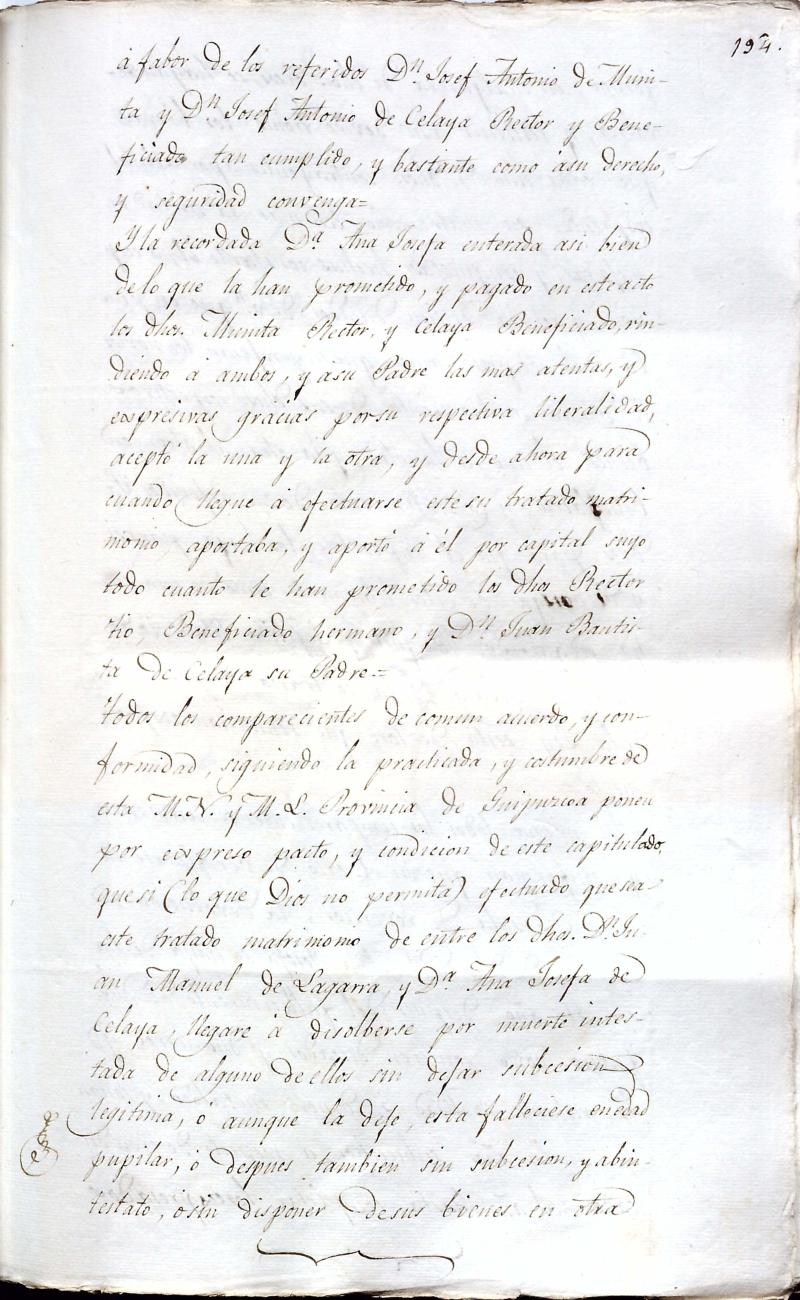 194.
á fabor de los referidos Dn. Josef Antonio de Muni-
ta y Dn. Josef Antonio de Celaya Rector y Bene-
ficiado tan cumplido, y bastante como ásu derecho,
y seguridad convenga=
Yla recordada Da. Ana Josefa enterada asi bien
delo que la han prometido, y pagado en este acto
los dhos. Munita Rector, y Celaya Beneficiado, rin-
diendo á ambos, y ásu Padre las mas atentas, y
expresivas gracias porsu respectiva liberalidad,
aceptó la una y la otra, y desde ahora para
cuando llegue á efectuarse este su tratado matri-
monio, aportaba, y aportó á él por capital suyo
todo cuanto le han prometido los dhos Rector
tio, Beneficiado hermano, y Dn. Juan Bautis-
ta de Celaya su Padre=
Todos los comparecientes de comun acuerdo, y con-
formidad, siguiendo la practicada, y costumbre de
esta M. N. y M. L. Provincia de Guipuzcoa ponen
por expreso pacto, y condicion de este capitulado,
que si (lo que Dios no permita) efectuado que sea
este tratado matrimonio de entre los dhos. Dn. Ju-
an Manuel de Lagarra, y Da Ana Josefa de
Celaya, llegare á disolberse por muerte intes-
tada de alguno de ellos sin dejar subcesion
legitima, ó aunque la deje, esta falleciese en edad
pupilar, ó despues tambien sin subcesion, y abin-
testato, ósin disponer desus bienes en otra